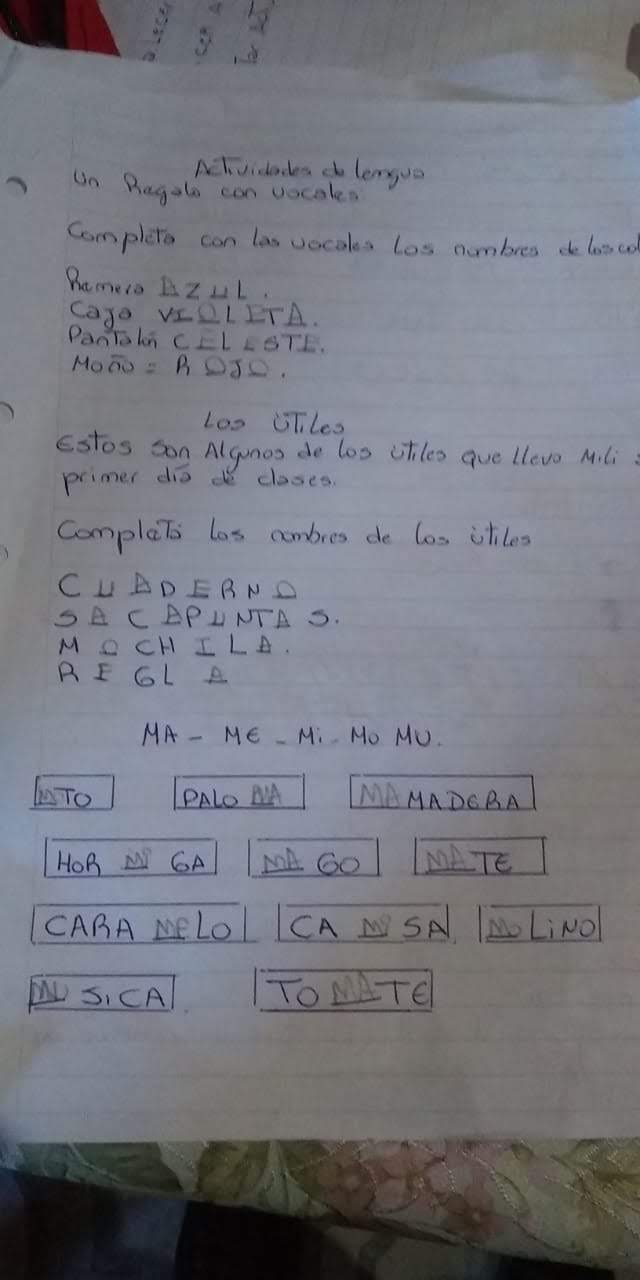 Actividades de lengua
Un Regalo con vocales
Completa con las vocales los nombres de los col
Remera AZUL.
Caja VIOLETA.
Pantalón CELESTE.
Moño = ROJO.
Los útiles
Estos son Algunos de los útiles que llevo Mili
primer día de clases.
Completá los nombres de los útiles
CUADERNO
SACAPUNTAS.
MOCHILA.
REGLA
MA - ME - Mi - Mo MU.
TO PALO MA MA MADERA
HOR Mi GA MA GO MA TE
CARA ME LO CA Mi SA Mo LiNO
MU SiCA TO MA TE